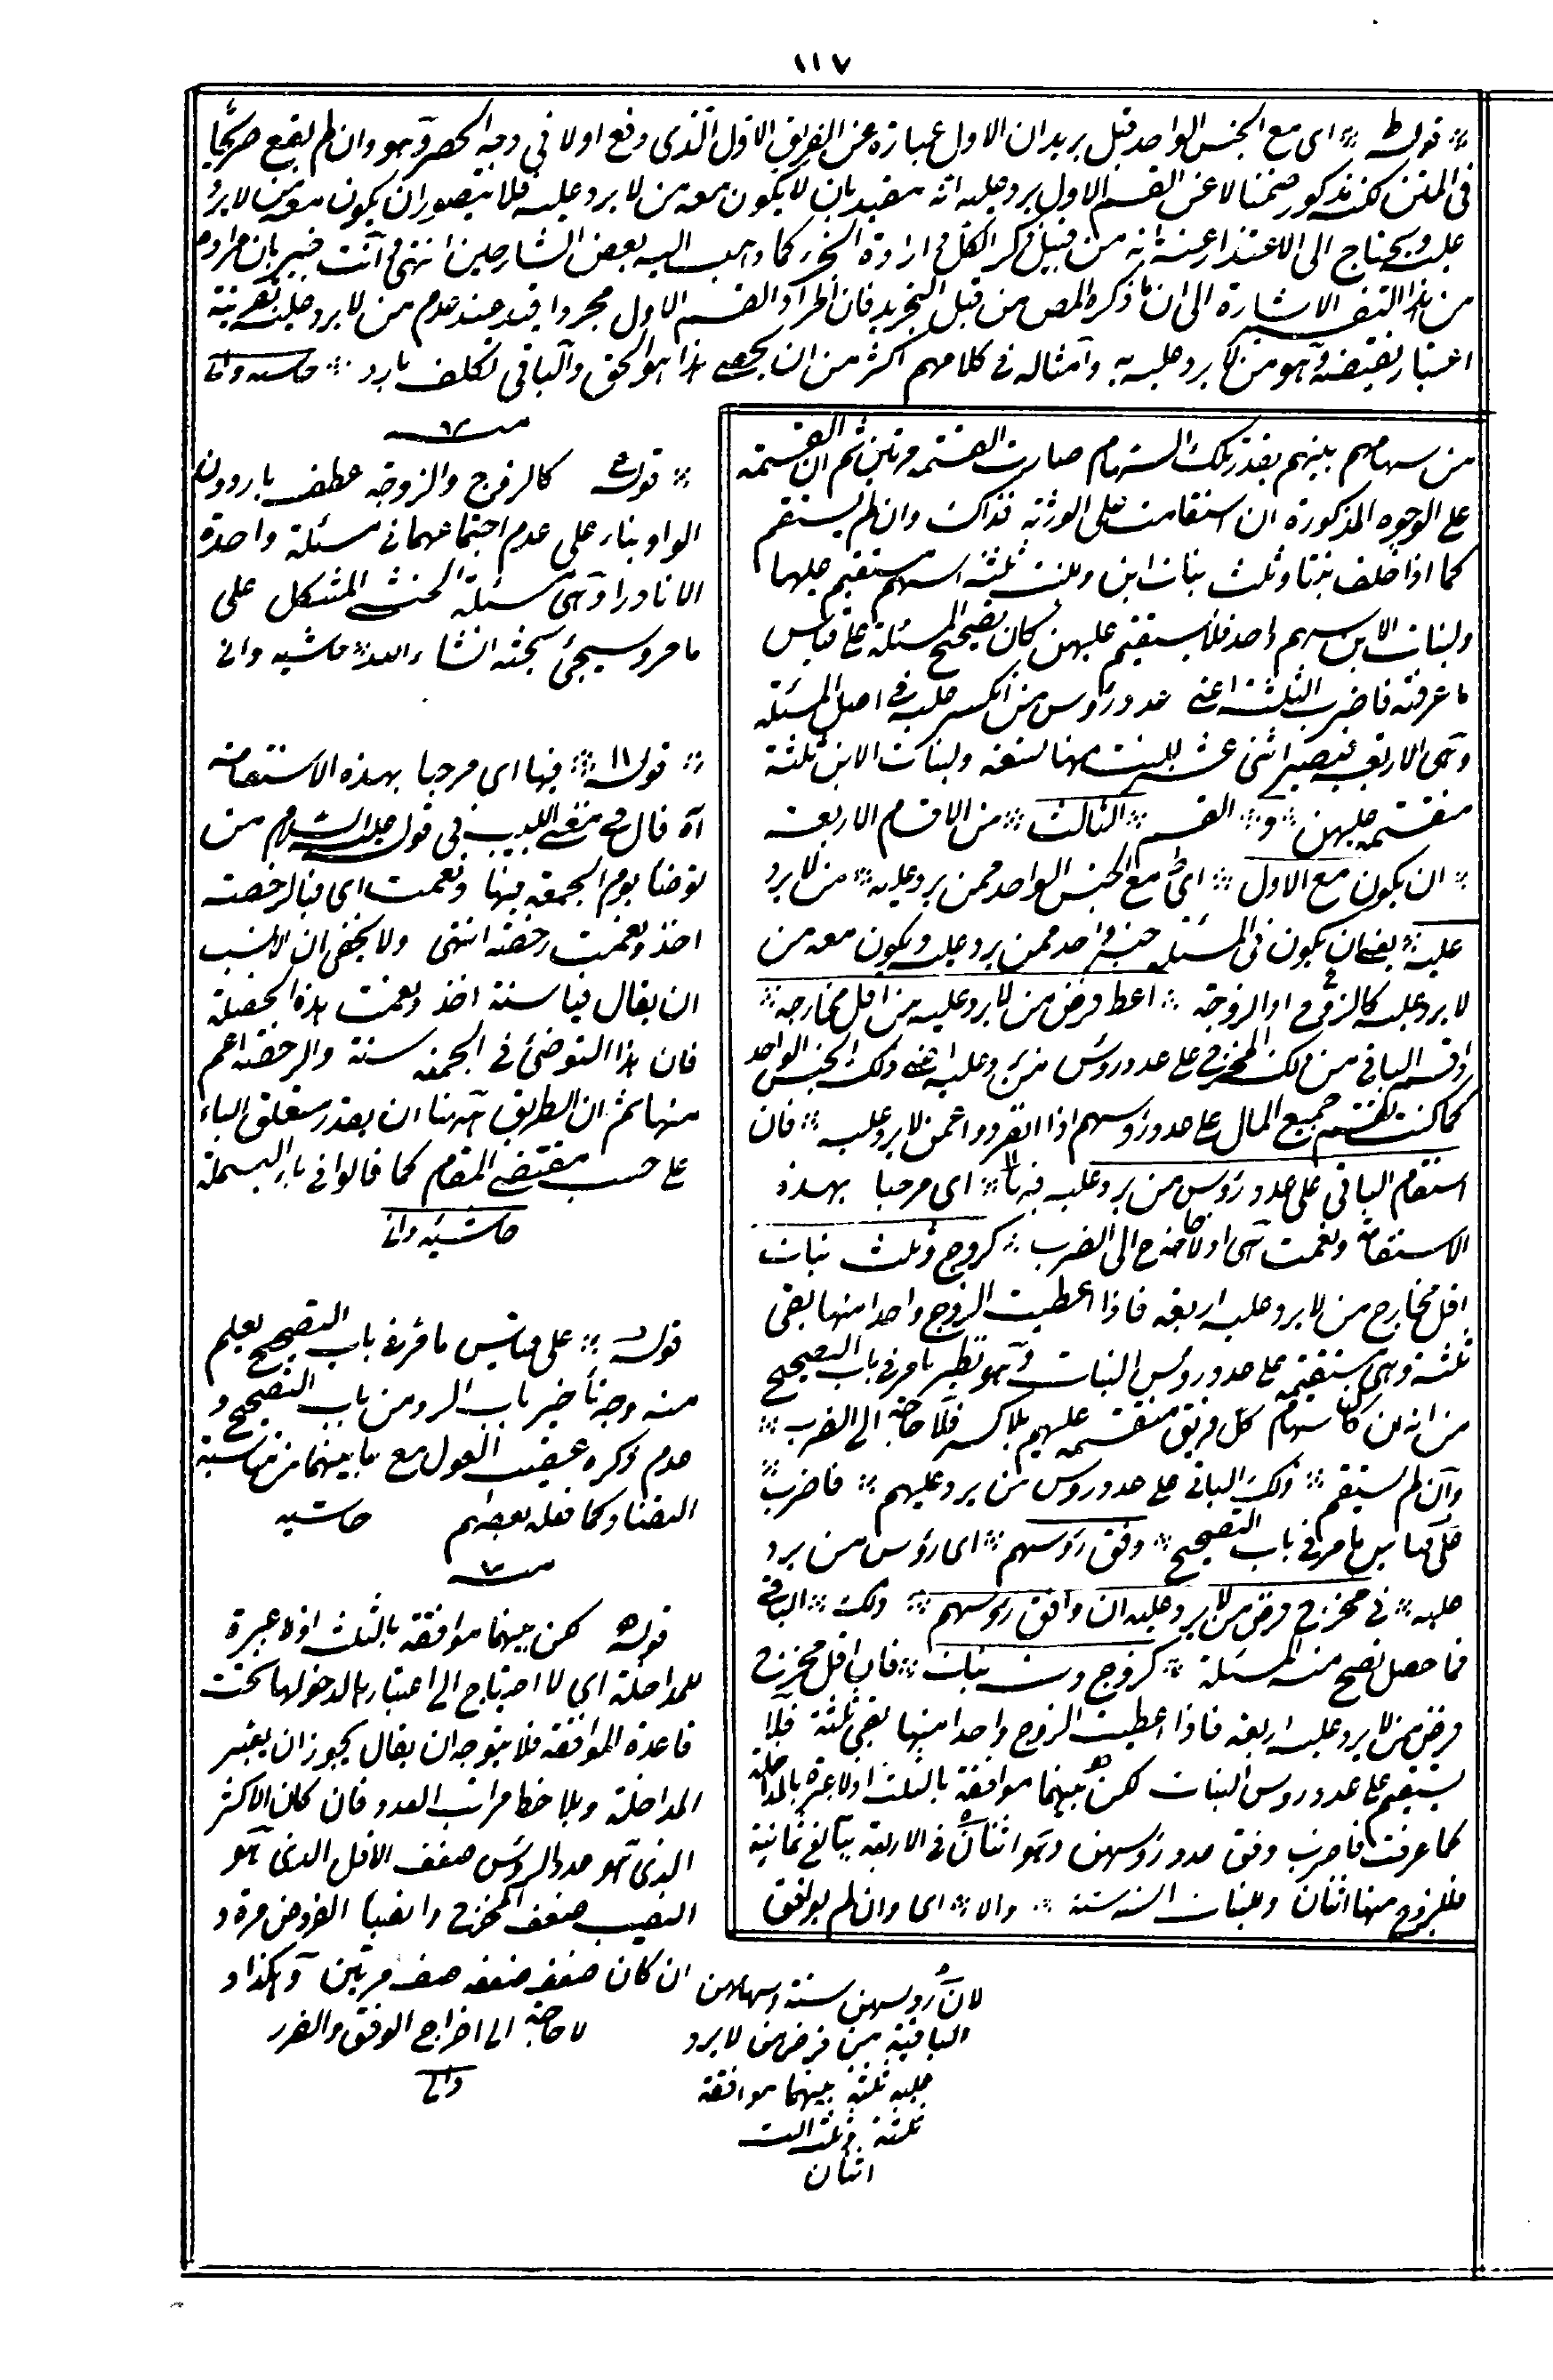 ١١٧
قوله اى مع الجنس الواحد قيل يريد ان الاول عبارة عن الفريق الاول الذى وقع اولا فى وجه الحصر وهو وان لم يقع صريحا
فى المتن لكنه مذكور ضمنا لا عن القسم الاول يرد عليه انه مقيد بان لا يكون معه من لا يرد عليه فلا يتصور ان يكون معه من لا يرد
عليه ويحتاج الى الاعتذار عنه انه من قبيل ذكر الكل فى ارادة الجزء كما ذهب اليه بعض الشارحين انتهى وانت خبير بان مراده
من هذا التفسير الاشارة الى ان ما ذكره المص من قبيل التجريد فان المراد القسم الاول مجردا قيد عند عدم من لا يرد عليه بقرينة
اعتبار نقيضه وهو من لا يرد عليه وامثاله فى كلامهم اكثر من ان يحصى هذا هو الحق والباقى تكلف بارد حاشيه وانى
من سهامهم بينهم بقدر تلك السهام صارت القسمة مرتين ثم ان القسمة
على الوجوه المذكورة ان استقامت على الورثة فذاك وان لم يستقم
كما اذا خلف بنتا وثلث بنات ابن وللبنت ثلثة اسهم مستقيم عليها
ولبنات الابن سهم واحد فلا يستقيم عليهن كان تصحيح المسئلة على قياس
ما عرفته فاضرب الثلثة اعنى عدد رؤس من انكسر عليه فى اصل المسئلة
وهى الاربعة فيصير اثنى عشر للبنت منها تسعة ولبنات الابن ثلثة
منقسمة عليهن و القسم الثالث من الاقسام الاربعة
ان يكون مع الاول اى مع الجنس الواحد ممن يرد عليه من لا يرد
عليه يعنى ان يكون فى المسئلة جنس واحد ممن يرد عليه ويكون معه من
لا يرد عليه كالزوج او الزوجة اعط فرض من لا يرد عليه من اقل مخارجه
واقسم الباقى من ذلك المخرج على عدد رؤس من يرد عليه اعنى ذلك الجنس الواحد
كما كنت تقسم جميع المال على عدد رؤسهم اذا انفردوا عمن لا يرد عليه فان
استقام الباقى على عدد رؤس من يرد عليه فبها اى مرحبا بهذه
الاستقامة ونعمت هى اذ لا حاجة الى الضرب كزوج وثلث بنات
اقل مخارج من لا يرد عليه اربعة فاذا اعطيت الزوج واحدا منها بقى
ثلثة وهى مستقيمة على عدد رؤس البنات وهو نظير ما مر فى باب التصحيح
من انه ان كان سهام كل فريق منقسمة عليهم بلا كسر فلا حاجة الى الضرب
وان لم يستقم ذلك الباقى على عدد رؤس من يرد عليهم فاضرب
على قياس ما مر فى باب التصحيح وفق رؤسهم اى رؤس من يرد
عليه فى مخرج فرض من لا يرد عليه ان وافق رؤسهم ذلك الباقى
فما حصل تصح منه المسئلة كزوج وست بنات فان اقل مخرج
فرض من لا يرد عليه اربعة فاذا اعطيت الزوج واحدا منها بقى ثلثة فلا
يستقيم على عدد رؤس البنات لكن بينهما موافقة بالثلث اذ لا عبرة بالمداخلة
كما عرفت فاضرب وفق عدد رؤسهن وهو اثنان فى الاربعة يبلغ ثمانية
فللزوج منها اثنان وللبنات الستة ستة والا اى وان لم يوافق
قوله كالزوج والزوجة عطف باو دون
الواو بناء على عدم اجتماعهما فى مسئلة واحدة
الا نادرا وهى مسئلة الخنثى المشكل على
ما مر وسيجئ بحثه انشاء الله حاشيه وانى
قوله فبها اى مرحبا بهذه الاستقامة
آه قال فى مغنى اللبيب فى قوله عليه السلام من
توضأ يوم الجمعة فبها ونعمت اى فبالرخصة
اخذ ونعمت رخصة انتهى ولا يخفى ان الانسب
ان يقال فبالسنة اخذ ونعمت هذه الخصلة
فان هذا التوضئ فى الجمعة سنة والرخصة اعم
منها ثم ان الطريق ههنا ان يقدر متعلق الباء
على حسب مقتضى المقام كما قالوا فى باء البسملة
حاشيه وانى
قوله على قياس ما مر فى باب التصحيح يعلم
منه وجه تأخير باب الرد من باب التصحيح و
عدم ذكره عقيب العول مع ما بينهما من مناسبة
التضاد كما فعله بعضهم حاشيه
قوله لكن بينهما موافقة بالثلث اذ لا عبرة
للمداخلة اى لا احتياج الى اعتبارها لدخولها تحت
قاعدة الموافقة فلا يتوجه ان يقال يجوز ان يعتبر
المداخلة ويلاحظ مراتب العدد فان كان الاكثر
الذى هو عدد الرؤس ضعف الاقل الذى هو
النصيب ضعف المخرج وانصبا الفروض مرة و
ان كان ضعف ضعفه ضعف مرتين وهكذا و
لا حاجة الى اخراج الوفق والضرب
وانى
لان رؤسهن ستة وسهامهن
الباقية من فرض من لا يرد
عليه ثلثة بينهما موافقة
ثلثة وثلث الست
اثنان